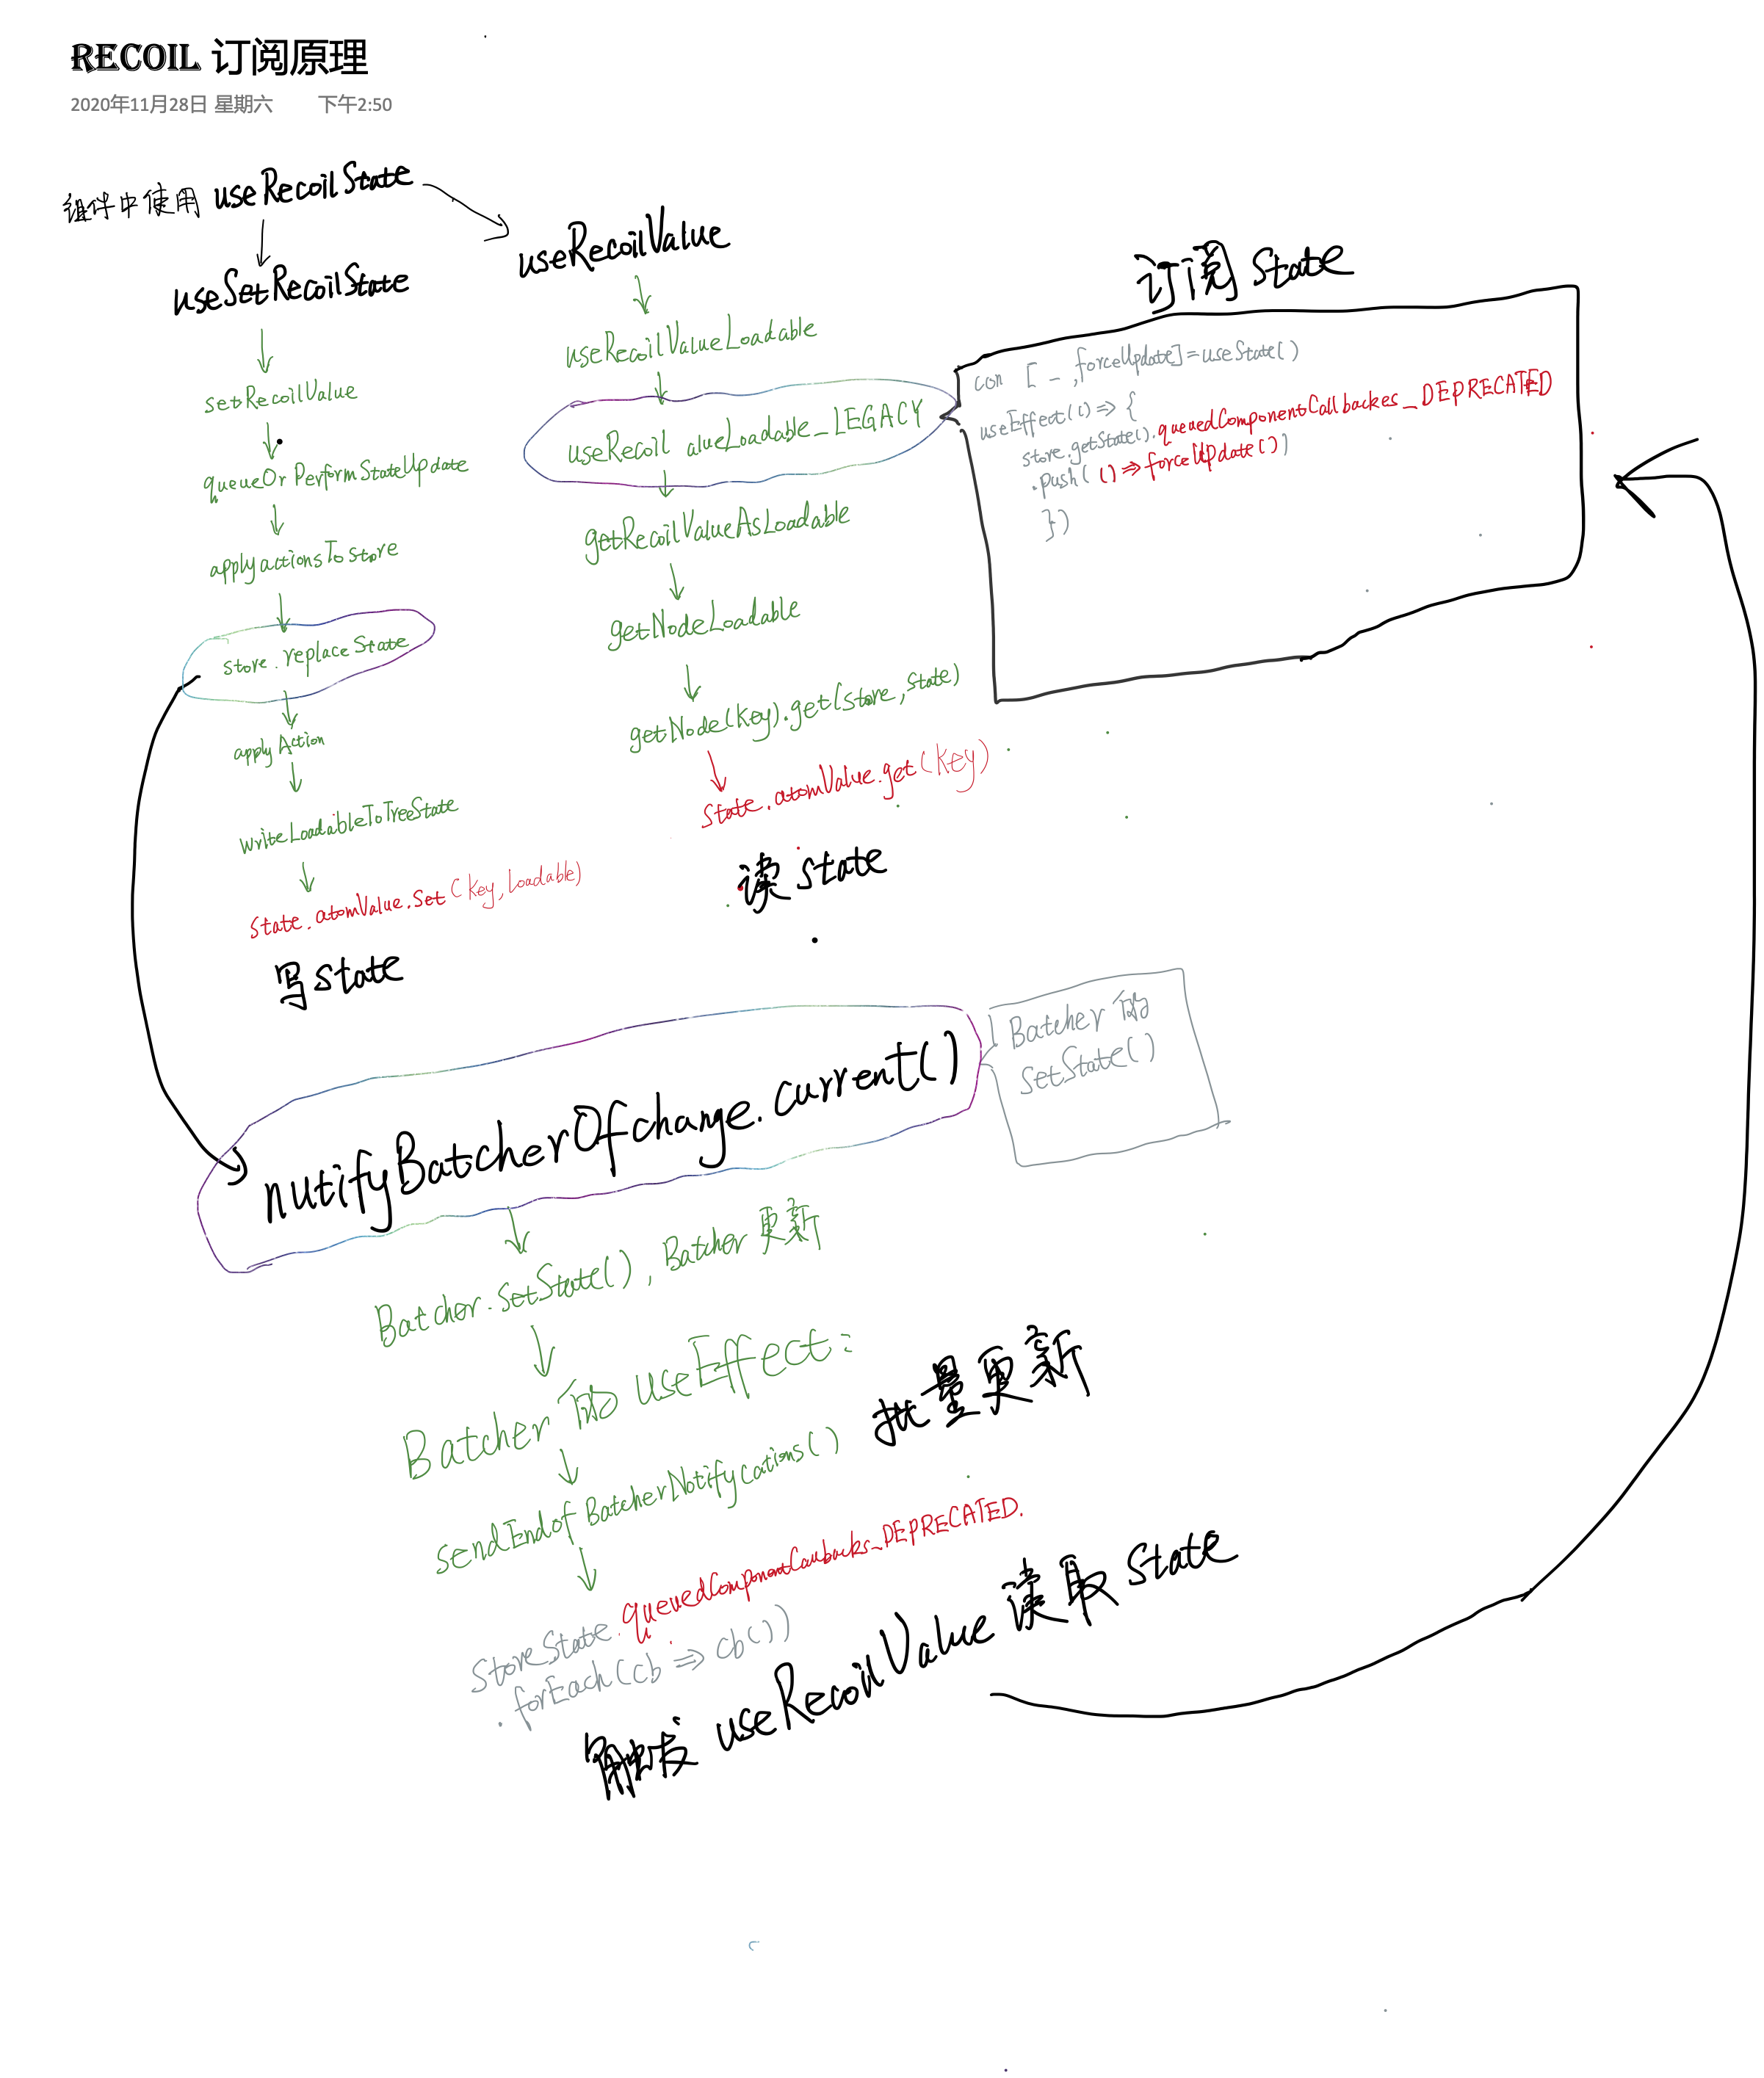 RECOIL 订阅原理
2020年11月28日 星期六 下午2:50
组件中使用 useRecoilState
useSetRecoilState
setRecoilValue
queueOrPerformStateUpdate
applyactionsTostore
store.replaceState
applyAction
writeLoadableToTreeState
State.atomValue.Set(key,Loadable)
写state
useRecoilValue
useRecoilValueLoadable
useRecoil alueLoadable_LEGACY
getRecoilValueAsLoadable
getNodeLoadable
getNode(key).get(store,state)
State.atomValue.get(key)
读state
订阅State
con [ _ ,forceUpdate]=useState()
useEffect(()=>{
store.getState().queuedComponentCallbackes_DEPRECATED
.push( ()=>forceUpdate())
})
nutifyBatcherOfchange.current()
Batcher 的
setState()
Batcher.setState(), Batcher更新
Batcher 的 useEffect:
sendEndofBatcherNotifycations() 批量更新
StoreState.queuedComponentCaubacks_DEPRECATED.
.forEach(cb=>cb())
触发 useRecoilValue 读取 state